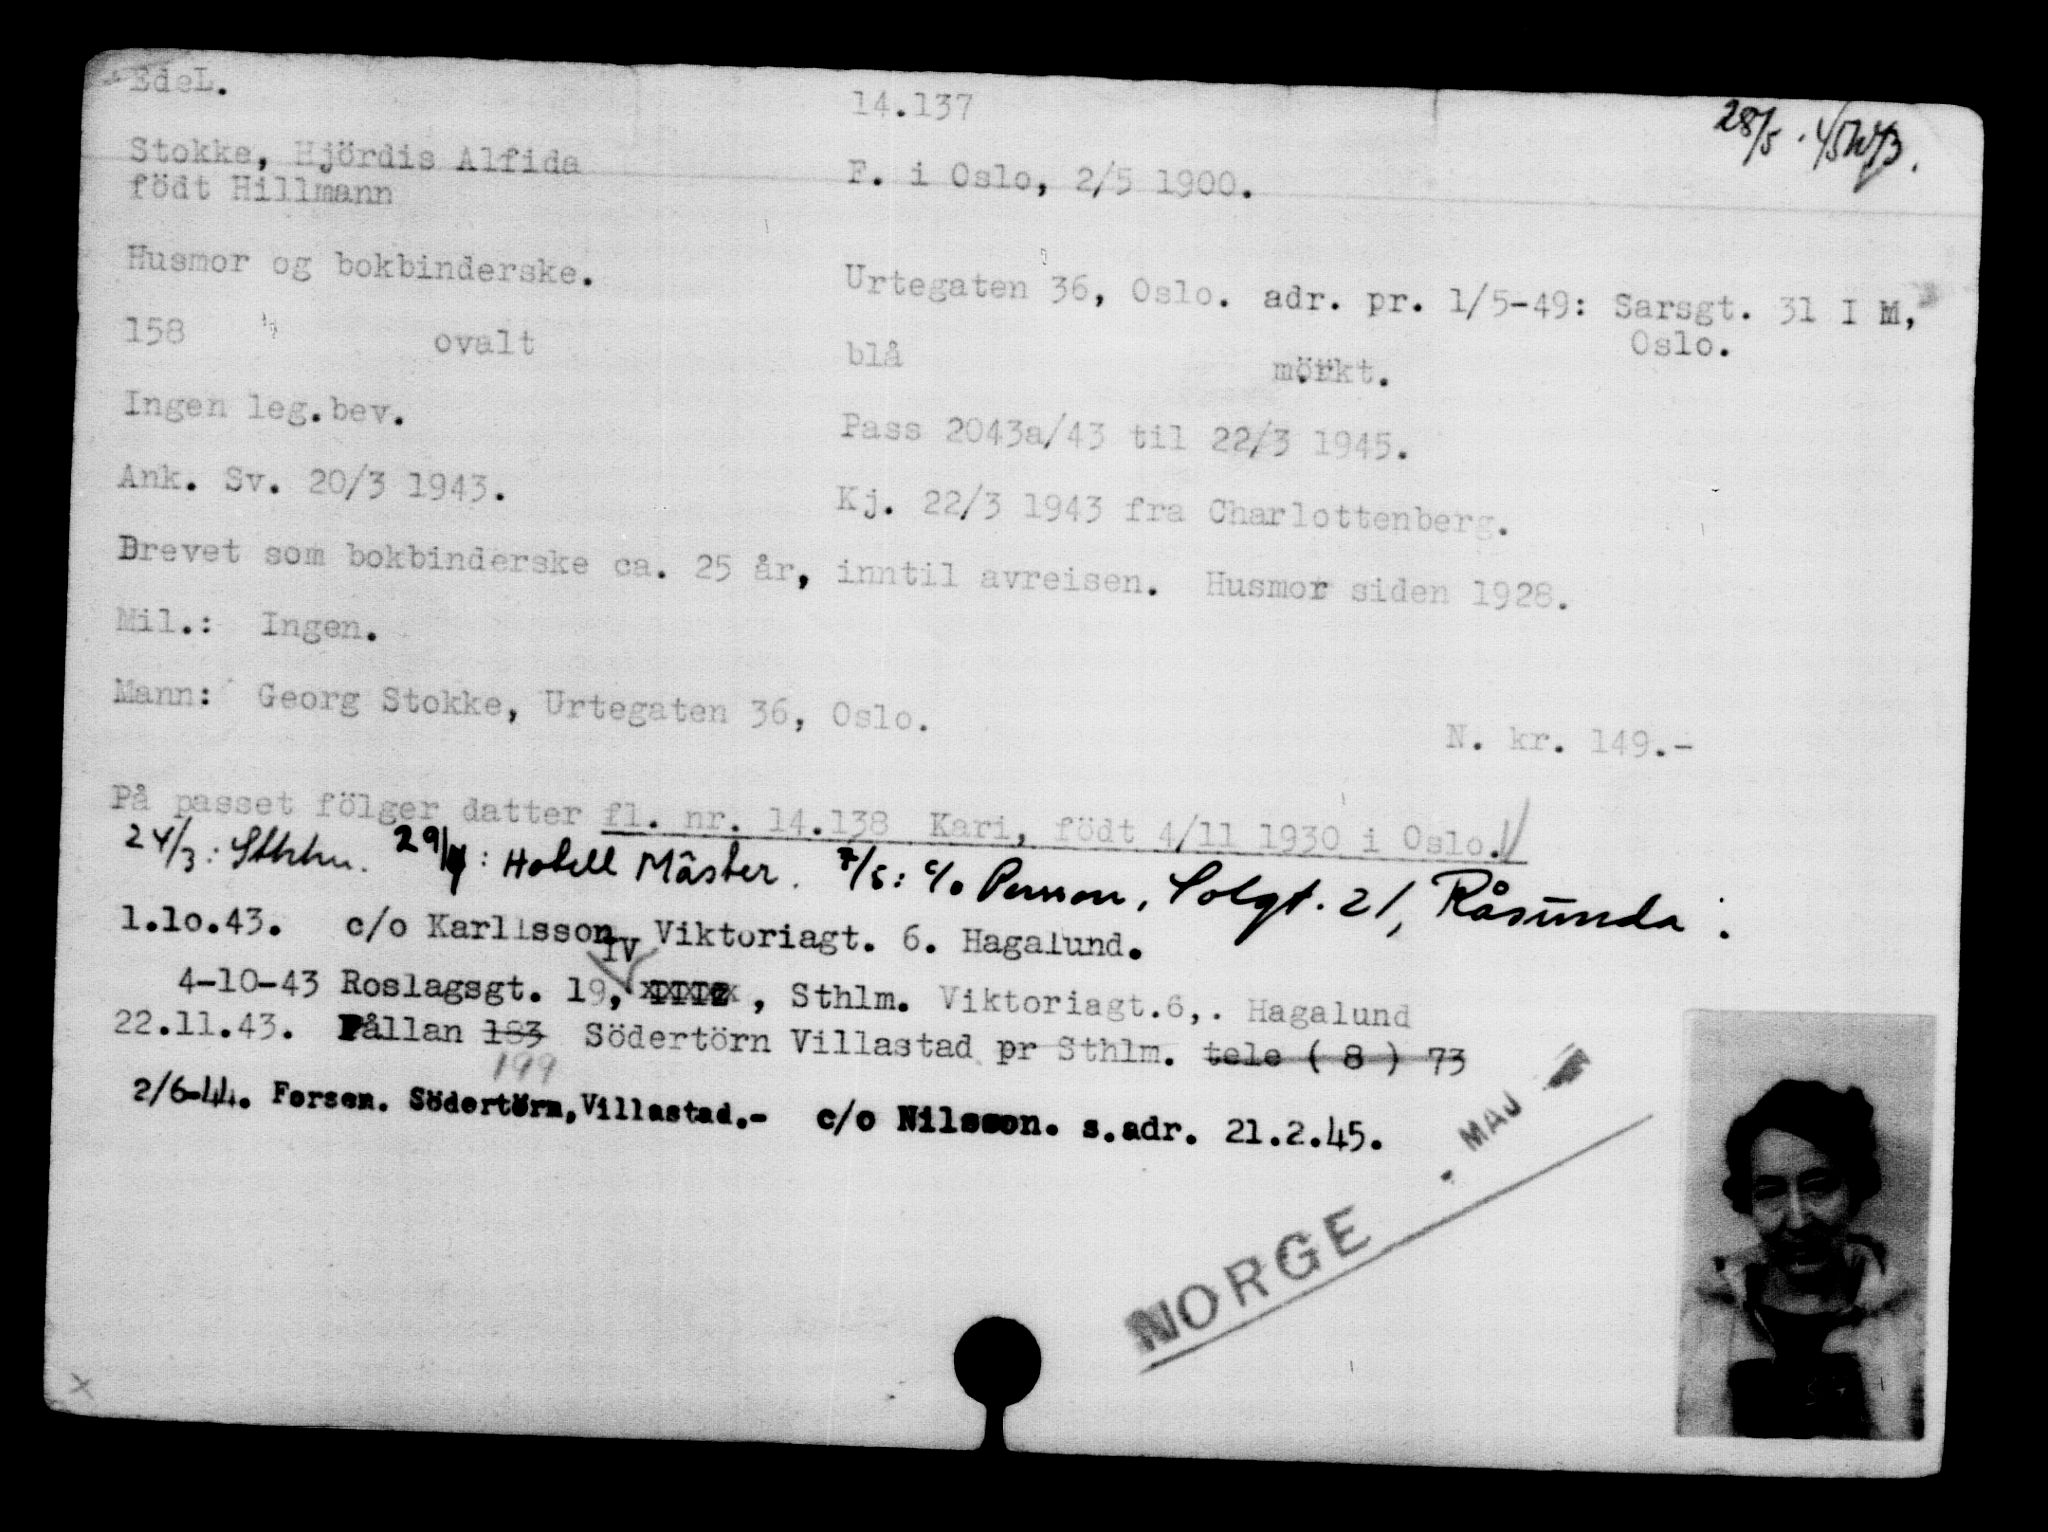 EdeL.
14.137
28/5
Stokke, Hjördis Alfida
F. i Oslo, 2/5 1900.
födt Hillmann
Husmor og bokbinderske.
Urtegaten 36, Oslo. adr. pr. 1/5-49: Sarsgt. 31 I M,
Oslo.
158 ovalt
blå mörkt.
Ingen leg.bev.
Pass 2043a/43 til 22/3 1945.
Ank. Sv. 20/3 1943.
Kj. 22/3 1943 fra Charlottenberg.
Drevet som bokbinderske ca. 25 år, inntil avreisen. Husmor siden 1928.
Mil.: Ingen.
Mann: Georg Stokke, Urtegaten 36, Oslo.
N. kr. 149.-
På passet fölger datter fl. nr. 14.138 Kari, födt 4/11 1930 i Oslo.
24/3: Sthlm. 29/4: Hotell Mäster. 7/5: c/o Persson, Solgt. 21, Råsunda.
1.10.43. c/o Karlsson Viktoriagt. 6. Hagalund.
IV
4-10-43 Roslagsgt. 19, , Sthlm. Viktoriagt.6,. Hagalund
22.11.43. Pållan 183 Södertörn Villastad pr Sthlm. tele ( 8 ) 73
199
2/6-44. Forsen. Södertörn, Villastad.- c/o Nilsson. s.adr. 21.2.45.
MAJ
NORGE